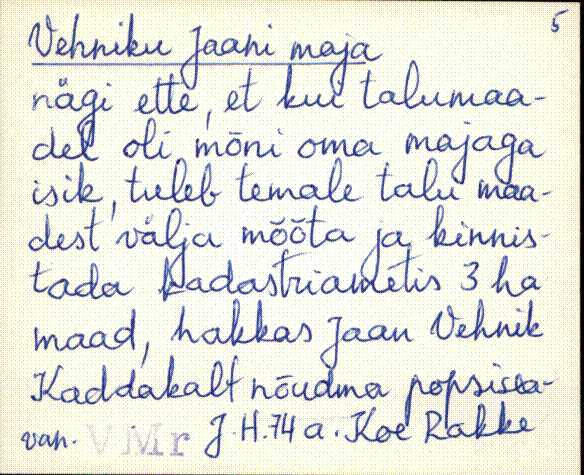 5
Vehniku Jaani maja
nägi ette, et kui talumaa-
del oli mõni oma majaga
isik, tuleb temale talu maa-
dest välja mõõta ja kinnis-
tada kadastriametis 3 ha
maad, hakkas Jaan Vehnik
Kaddakalt nõudma popsisea-
van. VMr J.H. 74 a. Koe Rakke